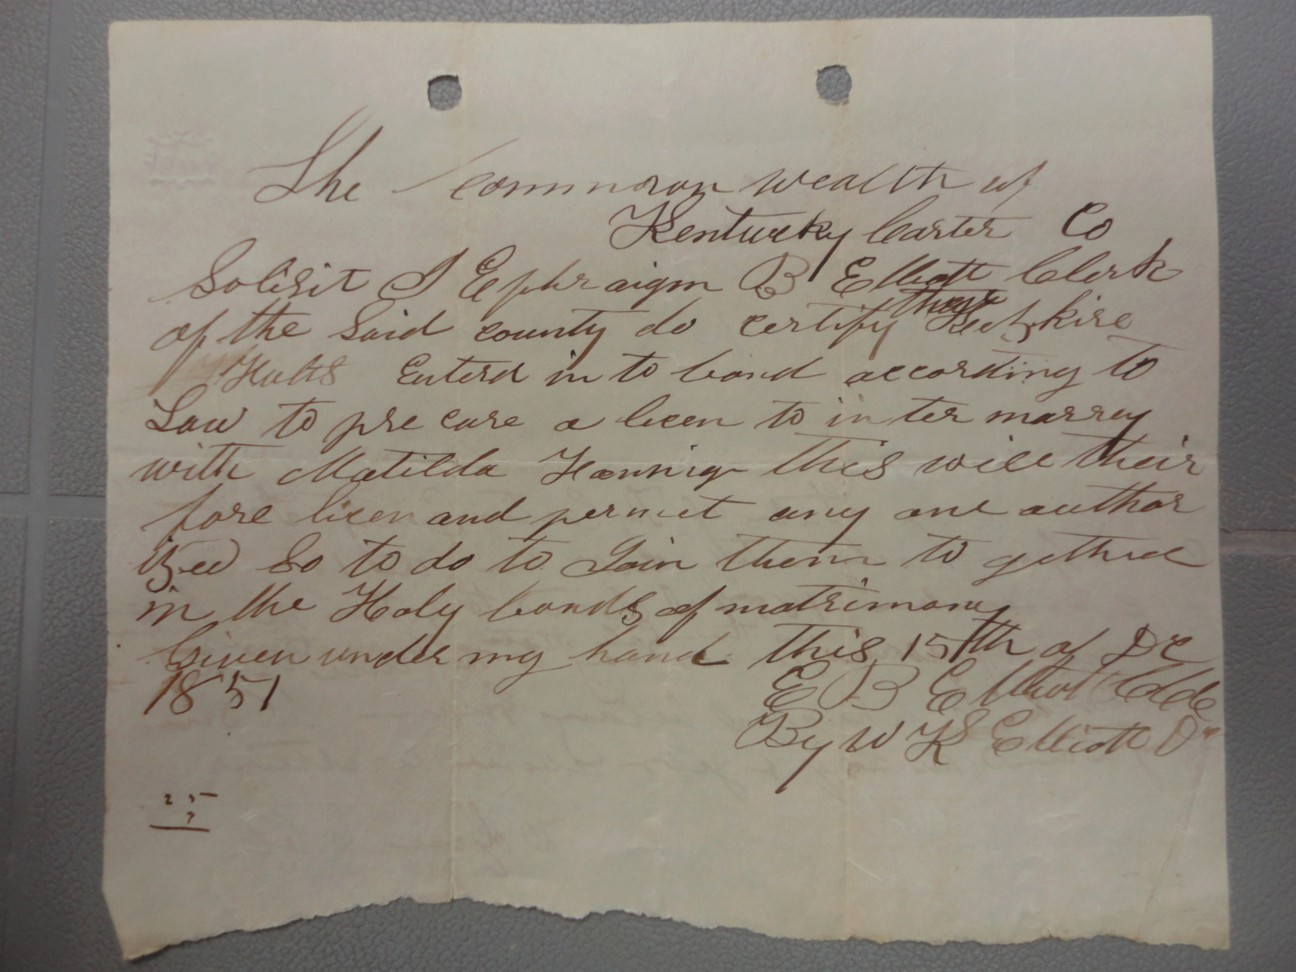 The common wealth of
Kentucky Carter Co
Solisit I Ephraigm B Elliott Clerk
of the Said county do certify that
Enterd in to bond according to
Law to precure a licen to inter marrey
with Matilda this will their
fore licen and permit any one author
ized So to do to Join them to gether
in the Holy bonds of matrimony
Given under my hand this 15th of DC
1851
E B Elliott
By W K Elliott D
25